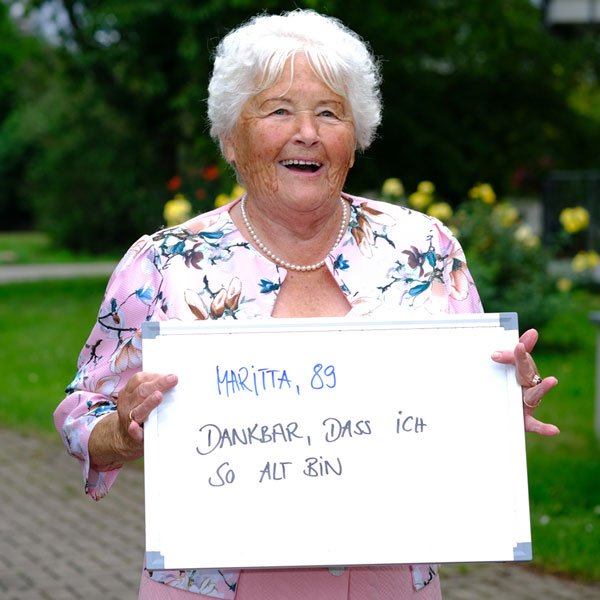 MARITTA, 89
DANKBAR, DASS ICH
SO ALT BIN